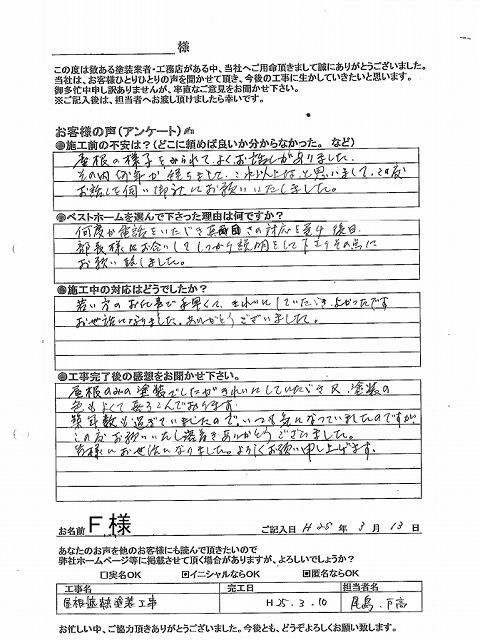 様
この度は数ある塗装業者・工務店がある中、当社へご用命頂きまして誠にありがとうございました。
当社は、お客様ひとりひとりの声を聞かせて頂き、今後の工事に生かしていきたいと思います。
御多忙中申し訳ありませんが、率直なご意見をお聞かせ下さい。
※ご記入後は、担当者へお渡し頂けましたら幸いです。
お客様の声(アンケート)
●施工前の不安は?(どこに頼めば良いか分からなかった。 など)
屋根の様子をみられて、よくお話しがありました。
その内何年か経ちまして、これ以上はと思いまして、この度
お話しを伺い御社にお願いいたしました。
●ベストホームを選んで下さった理由は何ですか?
何度か電話をいただき さの対応を受け後日
部長様にお会いしてしっかり説明をして下さりその点に
お願い致しました。
●施工中の対応はどうでしたか?
若い方のお仕事で手早くて、きれいにしていただき、よかったです
お世話になりました。ありがとうございました。
●工事完了後の感想をお聞かせ下さい。
屋根のみの塗装でしたがきれいにしていただき又、塗装の
色もよくて喜ろこんでおります。
築年数も過ぎていましたので、いつも気になっていましたのですが、
この度お願いいたし落着きありがとうございました。
皆様にお世話になりました。よろしくお願い申し上げます。
お名前 F 様 ご記入日 H25年 3月 13日
あなたのお声を他のお客様にも読んで頂きたいので
弊社ホームページ等に掲載させて頂く場合がありますが、よろしいでしょうか?
□実名OK ■イニシャルならOK ■匿名ならOK
工事名 完工日 担当者名
屋根 塗装工事 H25.3.10 尾島、戸高
お忙しい中、ご協力頂きありがとうございました。今後とも、どうぞよろしくお願い致します。